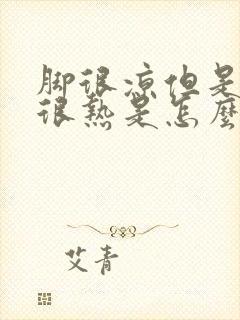 脚很凉但是
很热是怎麼
艾青